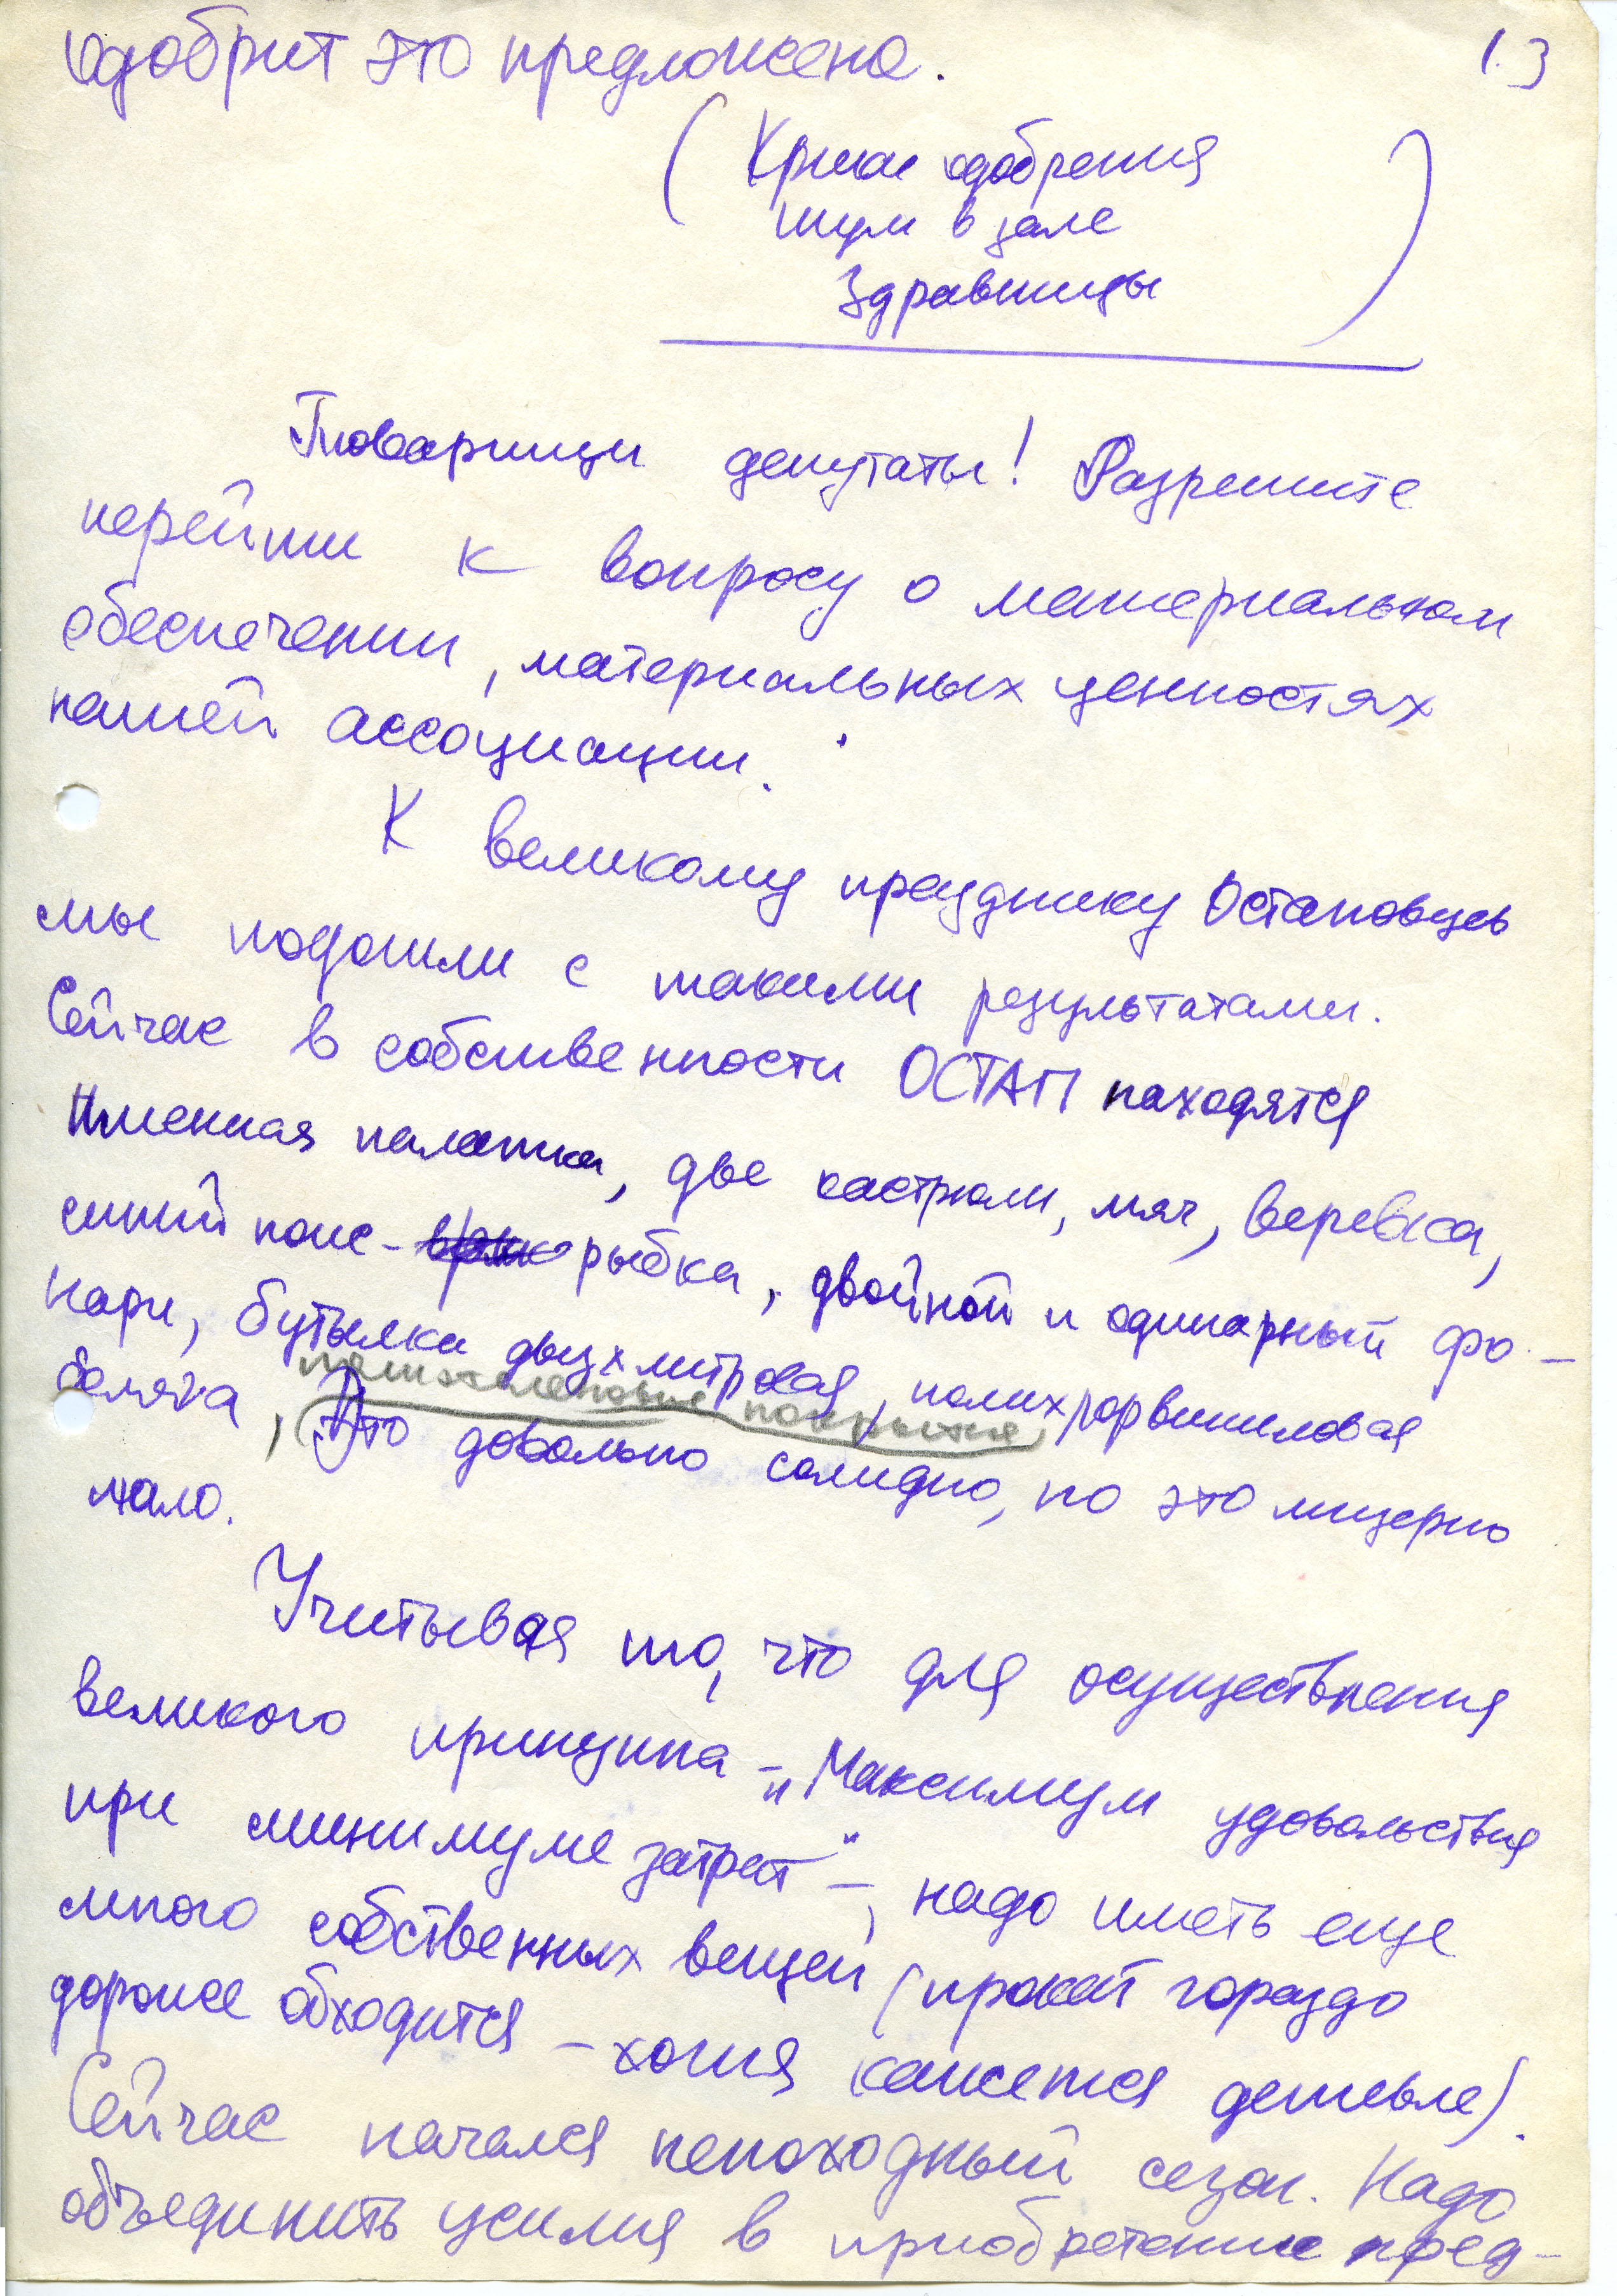 одобрит это предложение.
13
(Крики одобрения
шум в зале
Здравницы)
Товарищи депутаты! Разрешите
перейти к вопросу о материальном
обеспечении, материальных ценностях
нашей ассоциации.
К великому празднику Остаповцы
мы подошли с такими результатами.
Сейчас в собственности ОСТАП находятся
Именная палатка, две кастрюли, мяч, веревка,
синий поис- рыбка, двойной и одинарный фо-
нари, бутылка двухлитровая, полихлорвиниловая
полиэтиленовые покрытия
баляга, Это довольно солидно, но это мизерно
мало.
Учитывая то, что для осуществления
великого принципа – „Максимум удовольствия
при минимуме затрат" –, надо иметь еще
много собственных вещей (прокат гораздо
дороже обходится – хотя кажется дешевле).
Сейчас начался непоходный сезон. Надо
объединить усилия в приобретение пред-